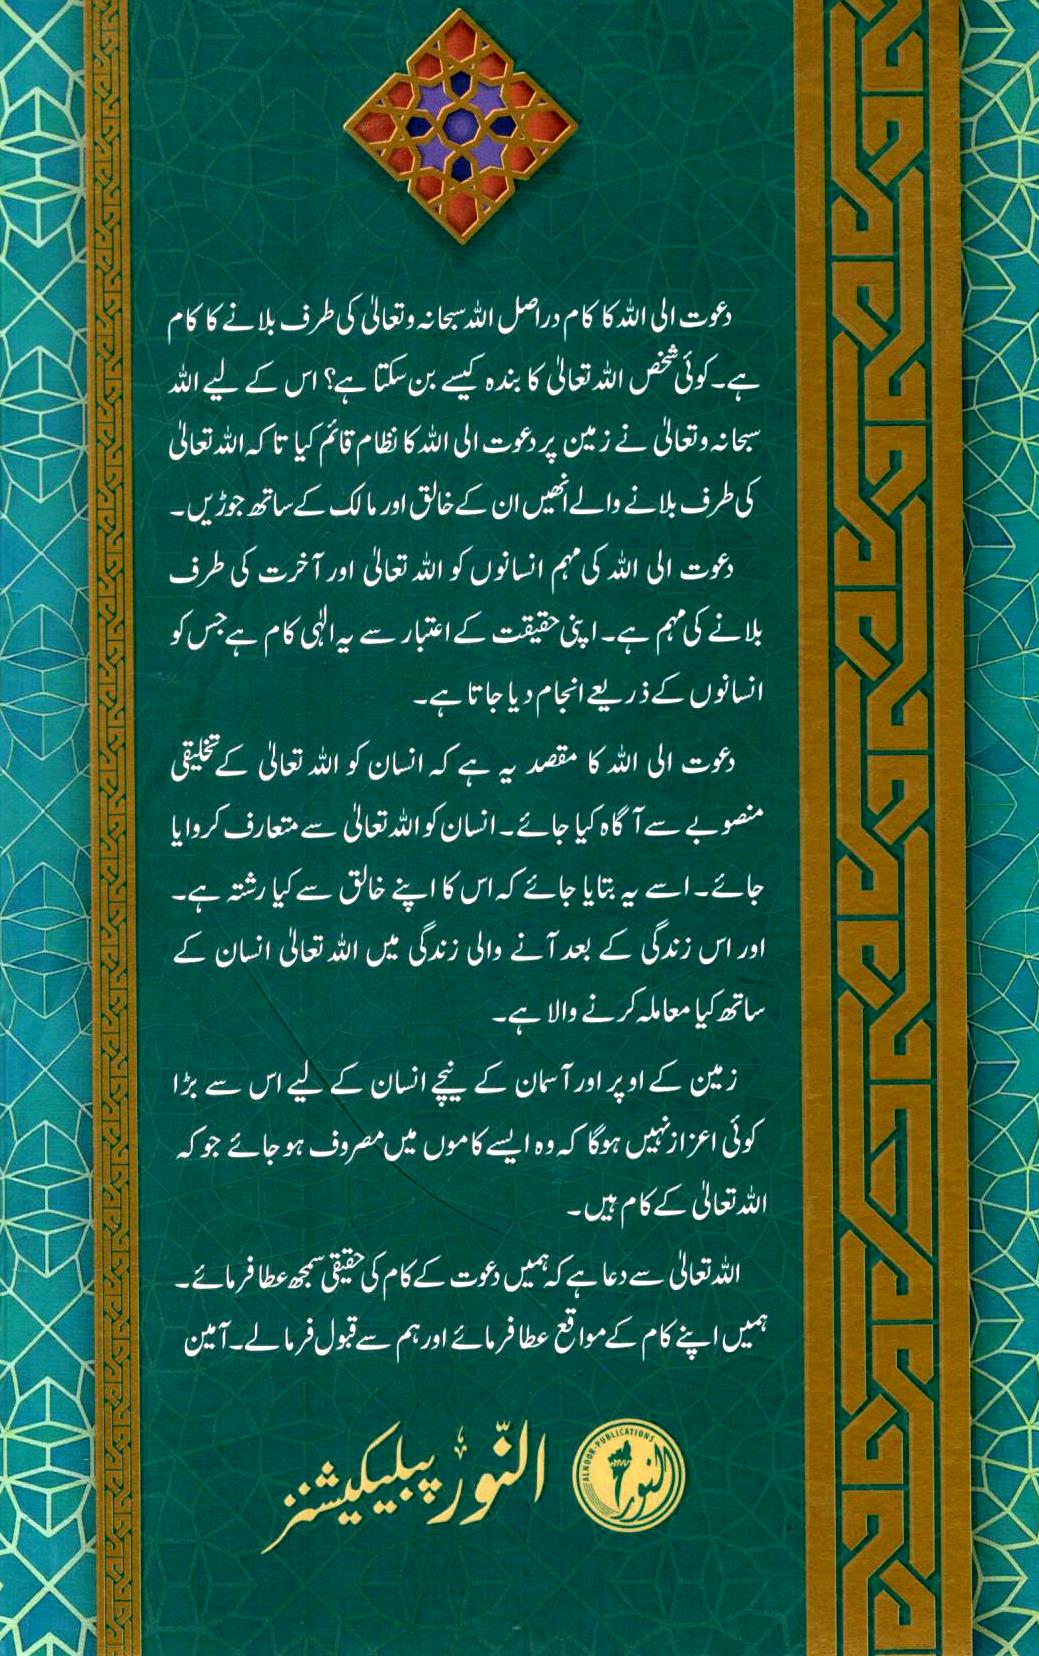 دعوت الی اللہ کا کام دراصل اللہ سبحانہ وتعالیٰ کی طرف بلانے کا کام
ہے۔ کوئی شخص اللہ تعالیٰ کا بندہ کیسے بن سکتا ہے؟ اس کے لیے اللہ
سبحانہ وتعالیٰ نے زمین پر دعوت الی اللہ کا نظام قائم کیا تاکہ اللہ تعالیٰ
کی طرف بلانے والے انھیں ان کے خالق اور مالک کے ساتھ جوڑیں۔
دعوت الی اللہ کی مہم انسانوں کو اللہ تعالیٰ اور آخرت کی طرف
بلانے کی مہم ہے۔ اپنی حقیقت کے اعتبار سے یہ الٰہی کام ہے جس کو
انسانوں کے ذریعے انجام دیا جاتا ہے۔
دعوت الی اللہ کا مقصد یہ ہے کہ انسان کو اللہ تعالیٰ کے تخلیقی
منصوبے سے آگاہ کیا جائے۔ انسان کو اللہ تعالیٰ سے متعارف کروایا
جائے۔ اسے یہ بتایا جائے کہ اس کا اپنے خالق سے کیا رشتہ ہے۔
اور اس زندگی کے بعد آنے والی زندگی میں اللہ تعالیٰ انسان کے
ساتھ کیا معاملہ کرنے والا ہے۔
زمین کے اوپر اور آسمان کے نیچے انسان کے لیے اس سے بڑا
کوئی اعزاز نہیں ہوگا کہ وہ ایسے کاموں میں مصروف ہو جائے جو کہ
اللہ تعالیٰ کے کام ہیں۔
اللہ تعالیٰ سے دعا ہے کہ ہمیں دعوت کے کام کی حقیقی سمجھ عطا فرمائے۔
ہمیں اپنے کام کے مواقع عطا فرمائے اور ہم سے قبول فرمالے۔ آمین
ALNOOR-PUBLICATIONS
النور
النّور پبلیکیشنز